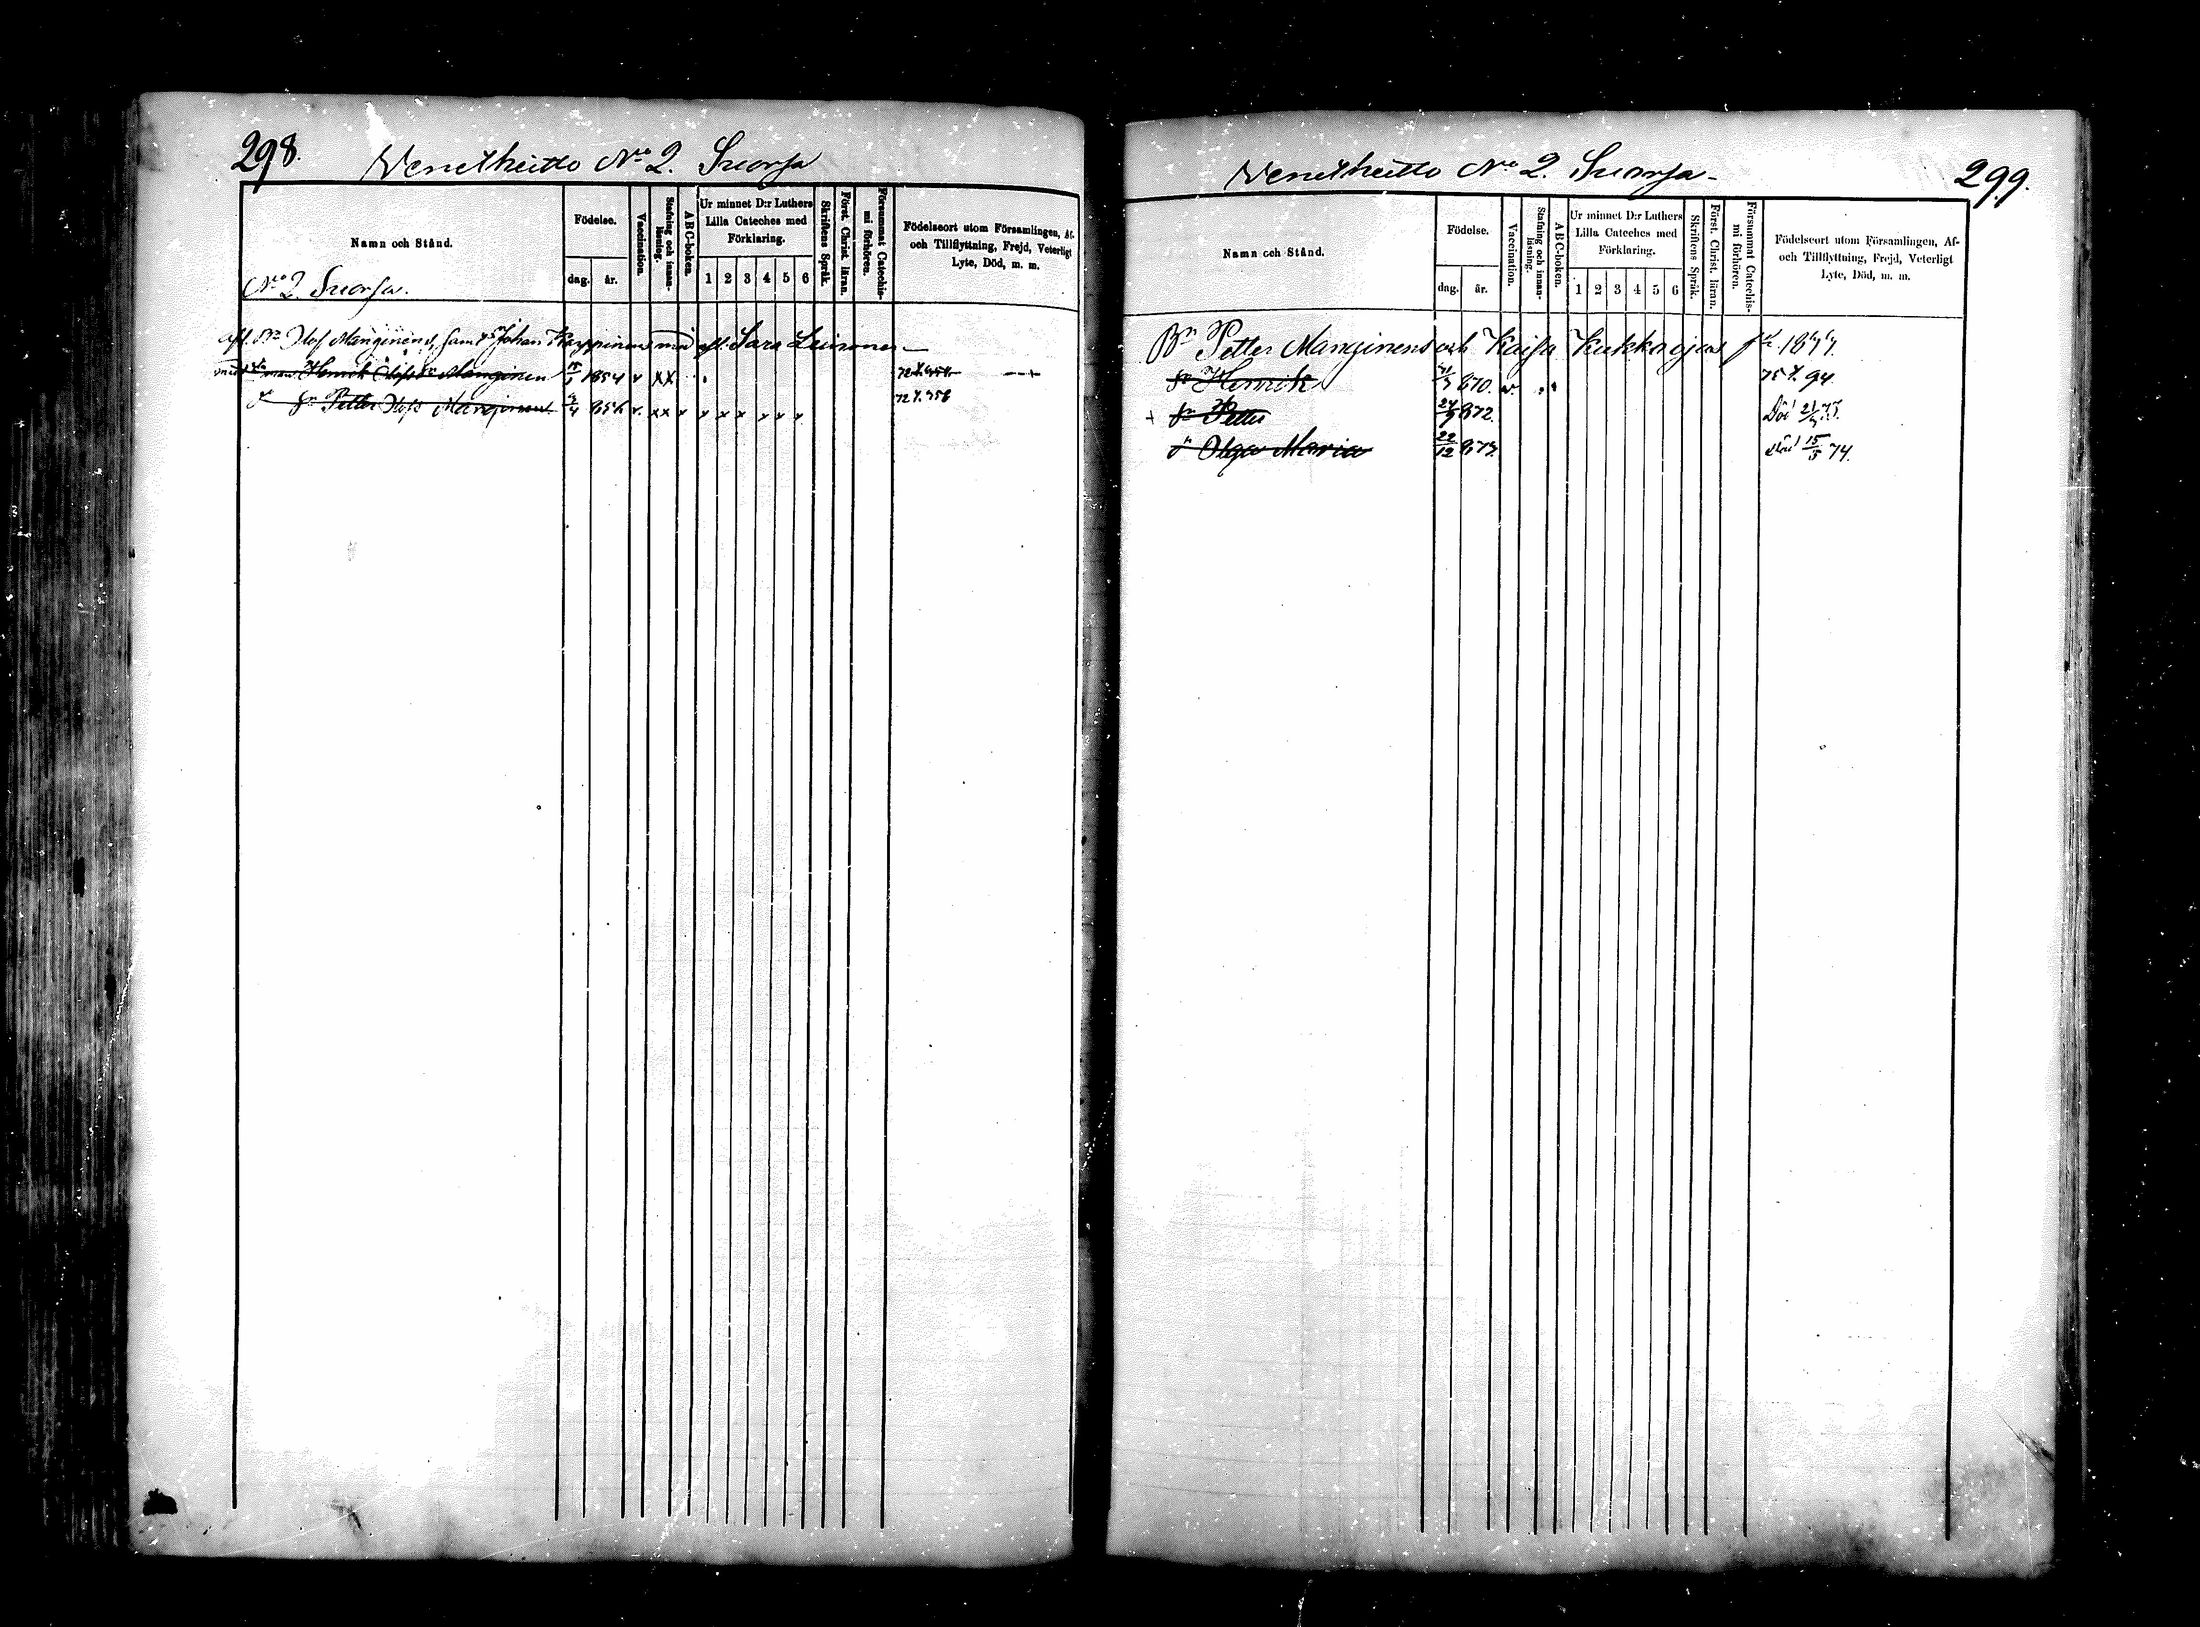 298.
Venetheitto No 2. Suorsa
Namn och Stånd.
Födelse.
dag.
år.
Vaccination.
Stafning och innanläsning.
ABC-boken.
Ur minnet D:r Luthers
Lilla Cateches med
Förklaring.
1 2 3 4 5 6
Skriftens Språk.
Först. Christ. läran.
Försummat Catechismi förhören.
Födelseort utom Församlingen, Af-
och Tillflyttning, Frejd, Veterligt
Lyte, Död, m. m.
No 2. Suorsa.
afl. Bn Olof Manginens, samt Johan Karppinens med afl. Sara Leinonen
Henrik Olofs sr Manginen 1854 v xx
sn Petter Olofs Manginen 856 v. xx v v v v v v v 72 f. 358
Venetheitto No 2. Suorsa
299.
Namn och Stånd.
Födelse.
dag.
år.
Vaccination.
Stafning och innanläsning.
ABC-boken.
Ur minnet D:r Luthers
Lilla Cateches med
Förklaring.
1 2 3 4 5 6
Skriftens Språk.
Först. Christ. läran.
Försummat Catechismi förhören.
Födelseort utom Församlingen, Af-
och Tillflyttning, Frejd, Veterligt
Lyte, Död, m. m.
Bn Petter Manginens och Kaisa Kukkaojas
sn Henrik 870. v. 75 f. 94.
+ sn Petter 24/9 872. Död
dr Olga Maria 22/12 873 död 15/5 74.